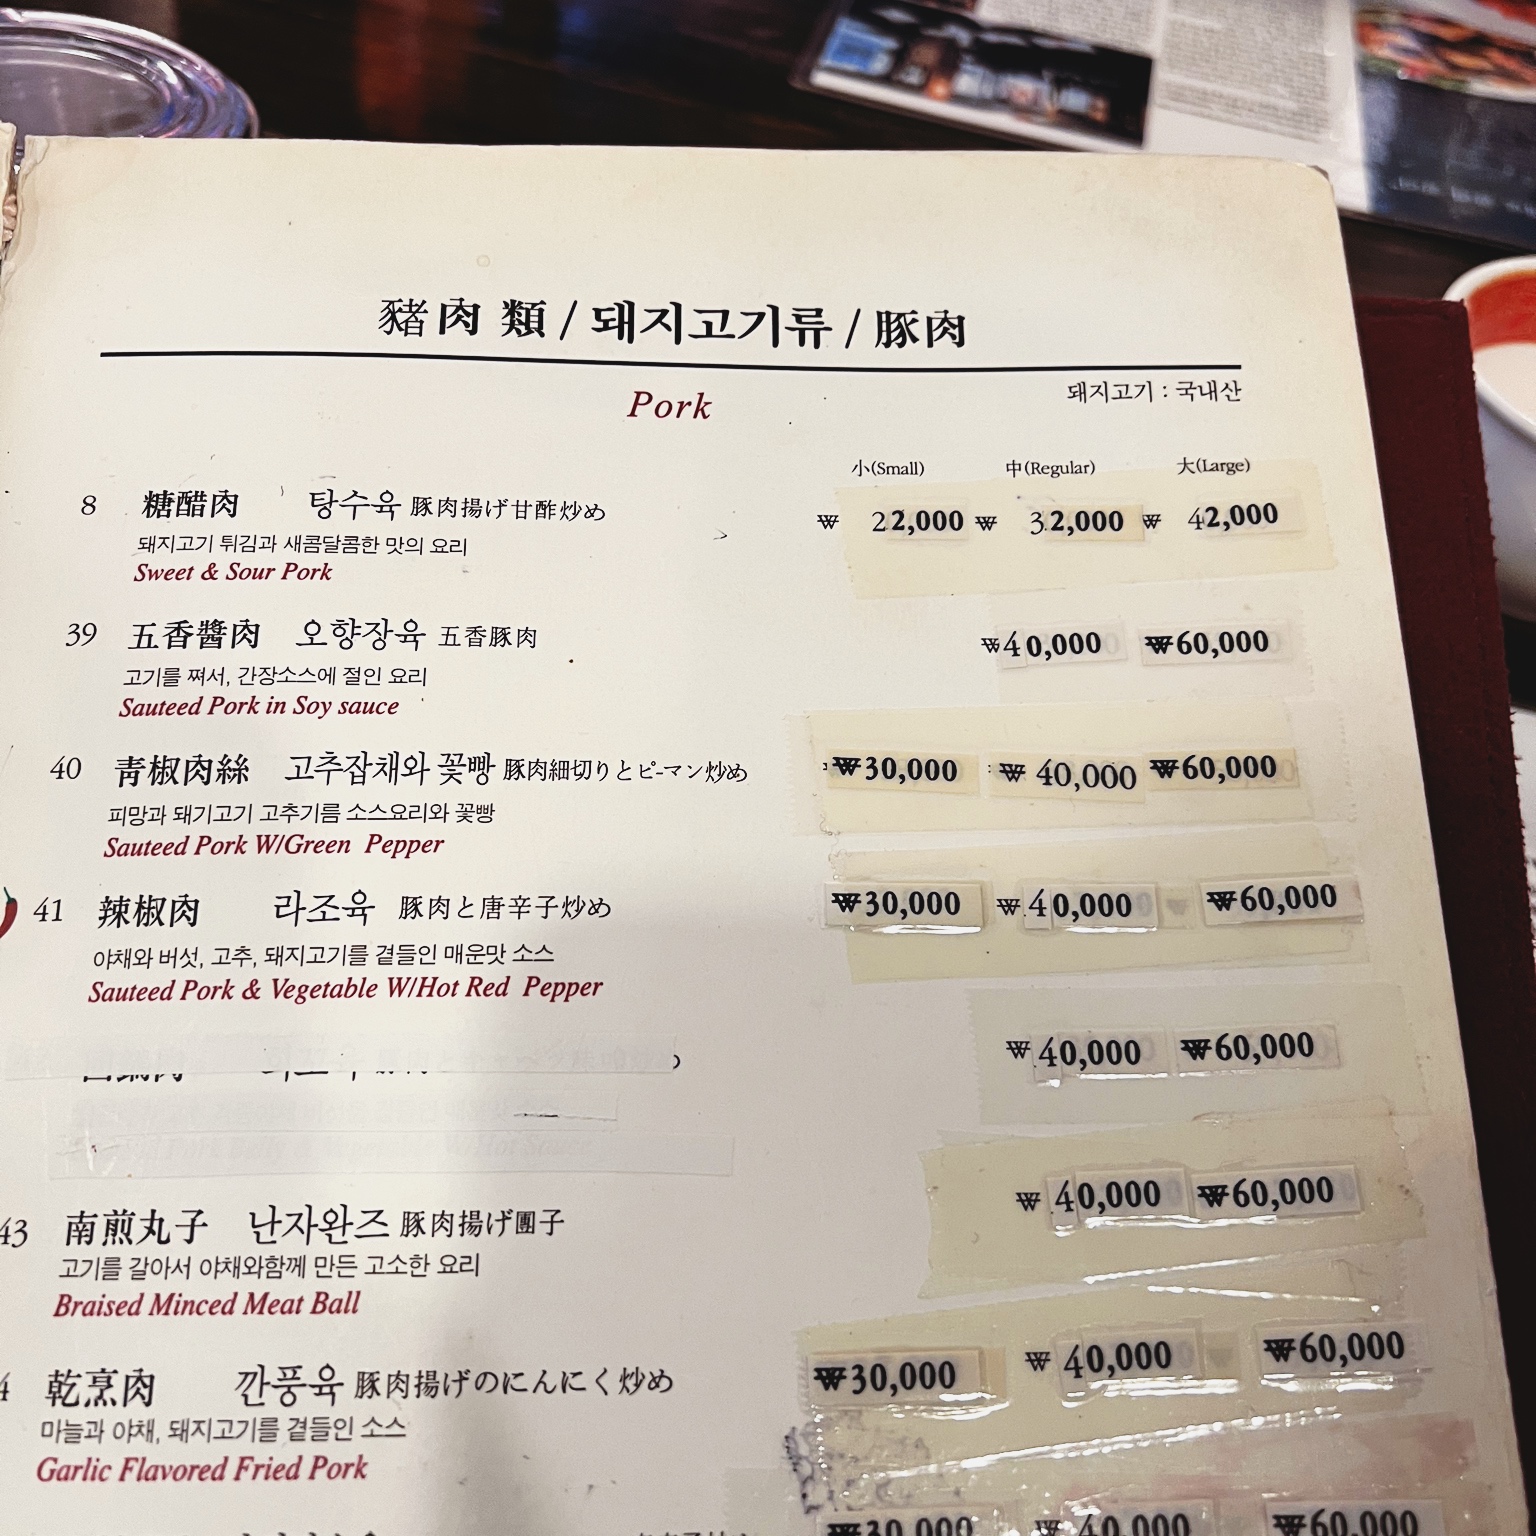 豬肉類 / 돼지고기류 / 豚肉
Pork
돼지고기 : 국내산
小(Small) 中(Regular) 大(Large)
8 糖醋肉 탕수육 豚肉揚げ甘酢炒め ₩ 22,000 ₩ 32,000 ₩ 42,000
돼지고기 튀김과 새콤달콤한 맛의 요리
Sweet & Sour Pork
39 五香醬肉 오향장육 五香豚肉 ₩40,000 ₩60,000
고기를 쪄서, 간장소스에 절인 요리
Sauteed Pork in Soy sauce
40 靑椒肉絲 고추잡채와 꽃빵 豚肉細切りとピ-マン炒め ₩30,000 ₩ 40,000 ₩60,000
피망과 돼기고기 고추기름 소스요리와 꽃빵
Sauteed Pork W/Green Pepper
41 辣椒肉 라조육 豚肉と唐辛子炒め ₩30,000 ₩40,000 ₩60,000
야채와 버섯, 고추, 돼지고기를 곁들인 매운맛 소스
Sauteed Pork & Vegetable W/Hot Red Pepper
₩40,000 ₩60,000
₩40,000 ₩60,000
43 南煎丸子 난자완즈 豚肉揚げ團子
고기를 갈아서 야채와함께 만든 고소한 요리
Braised Minced Meat Ball
4 乾烹肉 깐풍육 豚肉揚げのにんにく炒め ₩30,000 ₩ 40,000 ₩60,000
마늘과 야채, 돼지고기를 곁들인 소스
Garlic Flavored Fried Pork
₩30,000 ₩ 40,000 ₩60,000